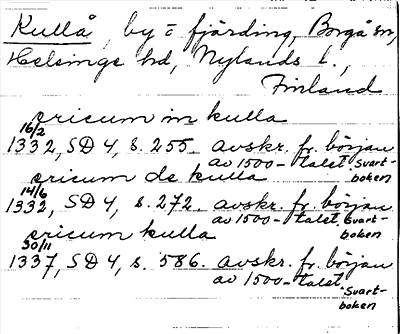 Kullå, by o fjärding, Borgå sn,
Helsinge hd, Nylands l.,
Finland
ericum in kulla
16/2
1332, SD 4, s. 255. avskr. fr. början
av 1500-talet. Svart-
boken
ericum de kulla
14/6
1332, SD 4, s. 272. avskr. fr. början
av 1500-talet. Svart-
boken
ericum kulla
30/11
1337, SD 4, s. 586. avskr. fr. början
av 1500-talet. Svart-
boken